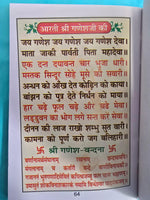 आरती श्री गणेशजी की
जय गणेश जय गणेश जय गणेश देवा।
माता जाकी पार्वती पिता महादेवा॥
एक दन्त दयावन्त चार भुजा धारी।
मस्तक सिन्दूर सोहे मूसे की सवारी॥
अन्धन को आँख देत कोढ़िन को काया।
बांझन को पुत्र देत निर्धन को माया॥
हार चढ़े फूल चढ़े और चढ़े मेवा।
लड्डुवन का भोग लगे सन्त करे सेवा॥
दीनन की लाज राखो शम्भु सुत वारी।
कामना को पूरी करो जग बलिहारी॥
श्री गणेश-वन्दना
64